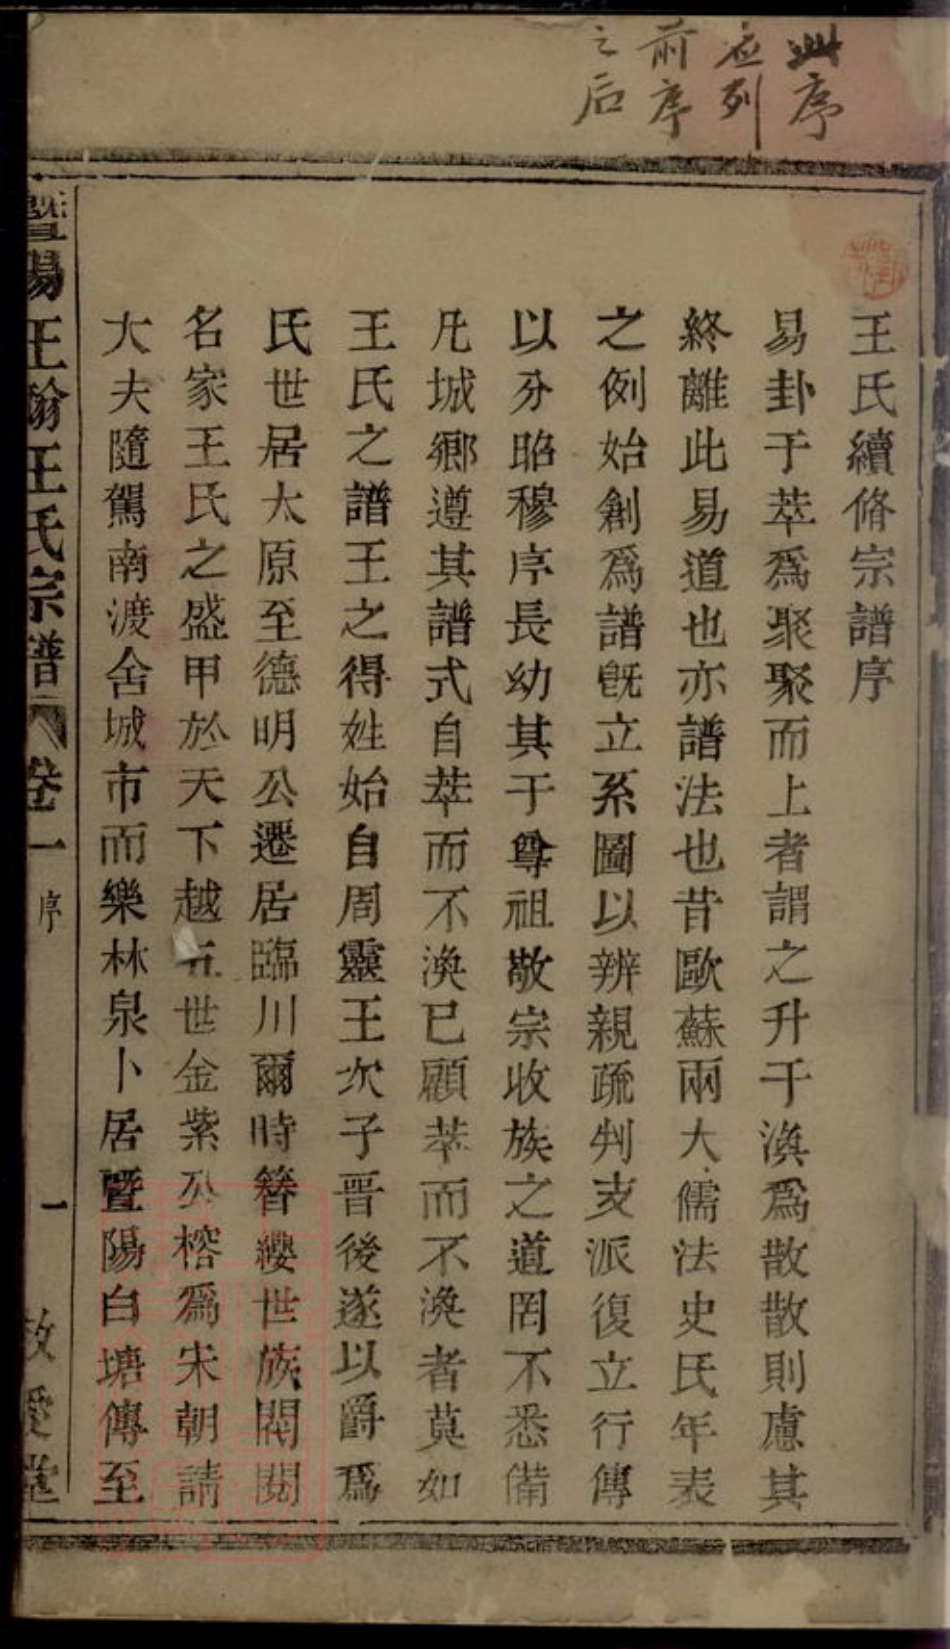 此序
应列
前序
之后
王氏續脩宗譜序
易卦于萃爲聚聚而上者謂之升于渙爲散散則慮其
終離此易道也亦譜法也昔歐蘇兩大儒法史氏年表
之例始創爲譜旣立系圖以辨親疏判支派復立行傳
以分昭穆序長幼其于尊祖敬宗收族之道罔不悉備
凡城鄉遵其譜式自萃而不渙已顧萃而不渙者莫如
王氏之譜王之得姓始自周靈王次子晋後遂以爵爲
氏世居太原至德明公遷居臨川爾時簪纓世族閥閱
名家王氏之盛甲於天下越五世金紫公榕爲宋朝請
大夫隨駕南渡舍城市而樂林泉卜居暨陽白塘傳至
暨陽王翰王氏宗譜 卷一 序 一 敦愛堂